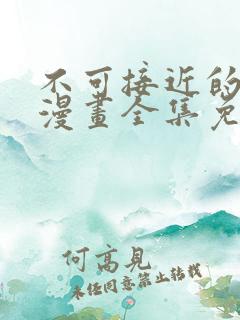 不可接近的
漫畫全集免
何高見
未经同意禁止转载